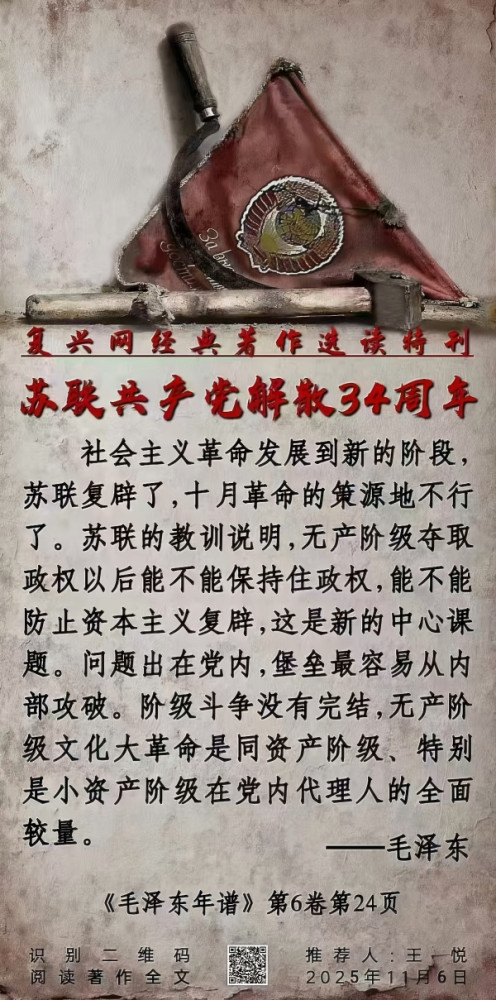 За вы
复兴网经典著作选读特刊
苏联共产党解散34周年
社会主义革命发展到新的阶段，
苏联复辟了，十月革命的策源地不行
了。苏联的教训说明，无产阶级夺取
政权以后能不能保持住政权，能不能
防止资本主义复辟，这是新的中心课
题。问题出在党内，堡垒最容易从内
部攻破。阶级斗争没有完结，无产阶
级文化大革命是同资产阶级、特别
是小资产阶级在党内代理人的全面
较量。
——毛泽东
《毛泽东年谱》第6卷第24页
识别二维码
阅读著作全文
推荐人：王一悦
2025年11月6日